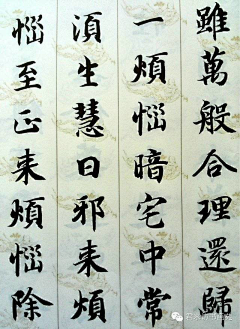 雖萬般合理還歸
一煩惱暗宅中常
湏生慧日邪來煩
惱至正来煩惱除